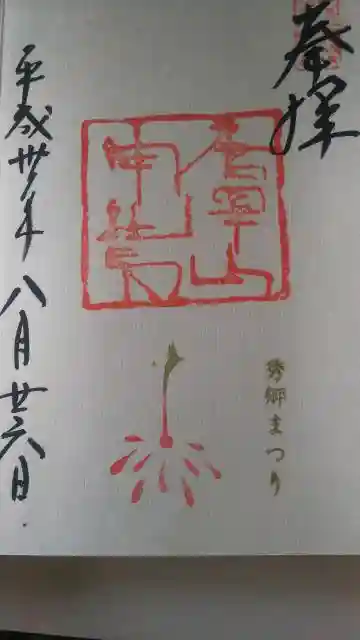 奉拝
秀郷まつり
平成卅年八月廿六日